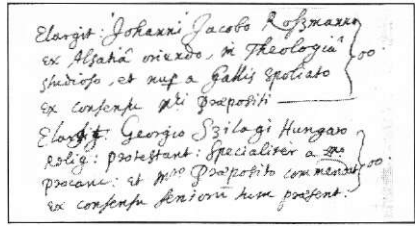 Elargit: Johanni Jacobo Roszmanno
ex Alsatiâ oriundo, in Theologiâ
studioso, et nup a Gallis spoliato
ex consensu mri Præpositi
Elargit: Georgio Szilagi Hungaro
Relig: protestant: specialiter a
procanc: et mro Præposito commendat
ex consensu seniorū tum præsent: